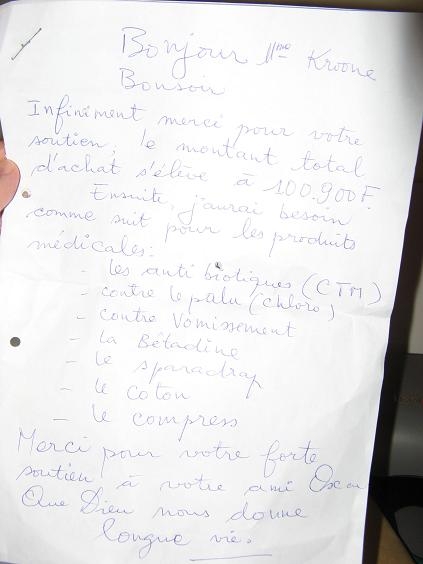 Bonjour Mme Kroone
Bonsoir
Infiniment merci pour votre
soutien, le montant total
d'achat s'élève à 100.900F.
Ensuite, j'aurai besoin
comme suit pour les produits
médicales:
- les anti biotiques (CTM)
- contre le palu (chloro)
- contre Vomissement
- la Bétadine
- le sparadrap
- le coton
- le compress
Merci pour votre forte
soutien à votre ami
Que Dieu nous donne
longue vie.